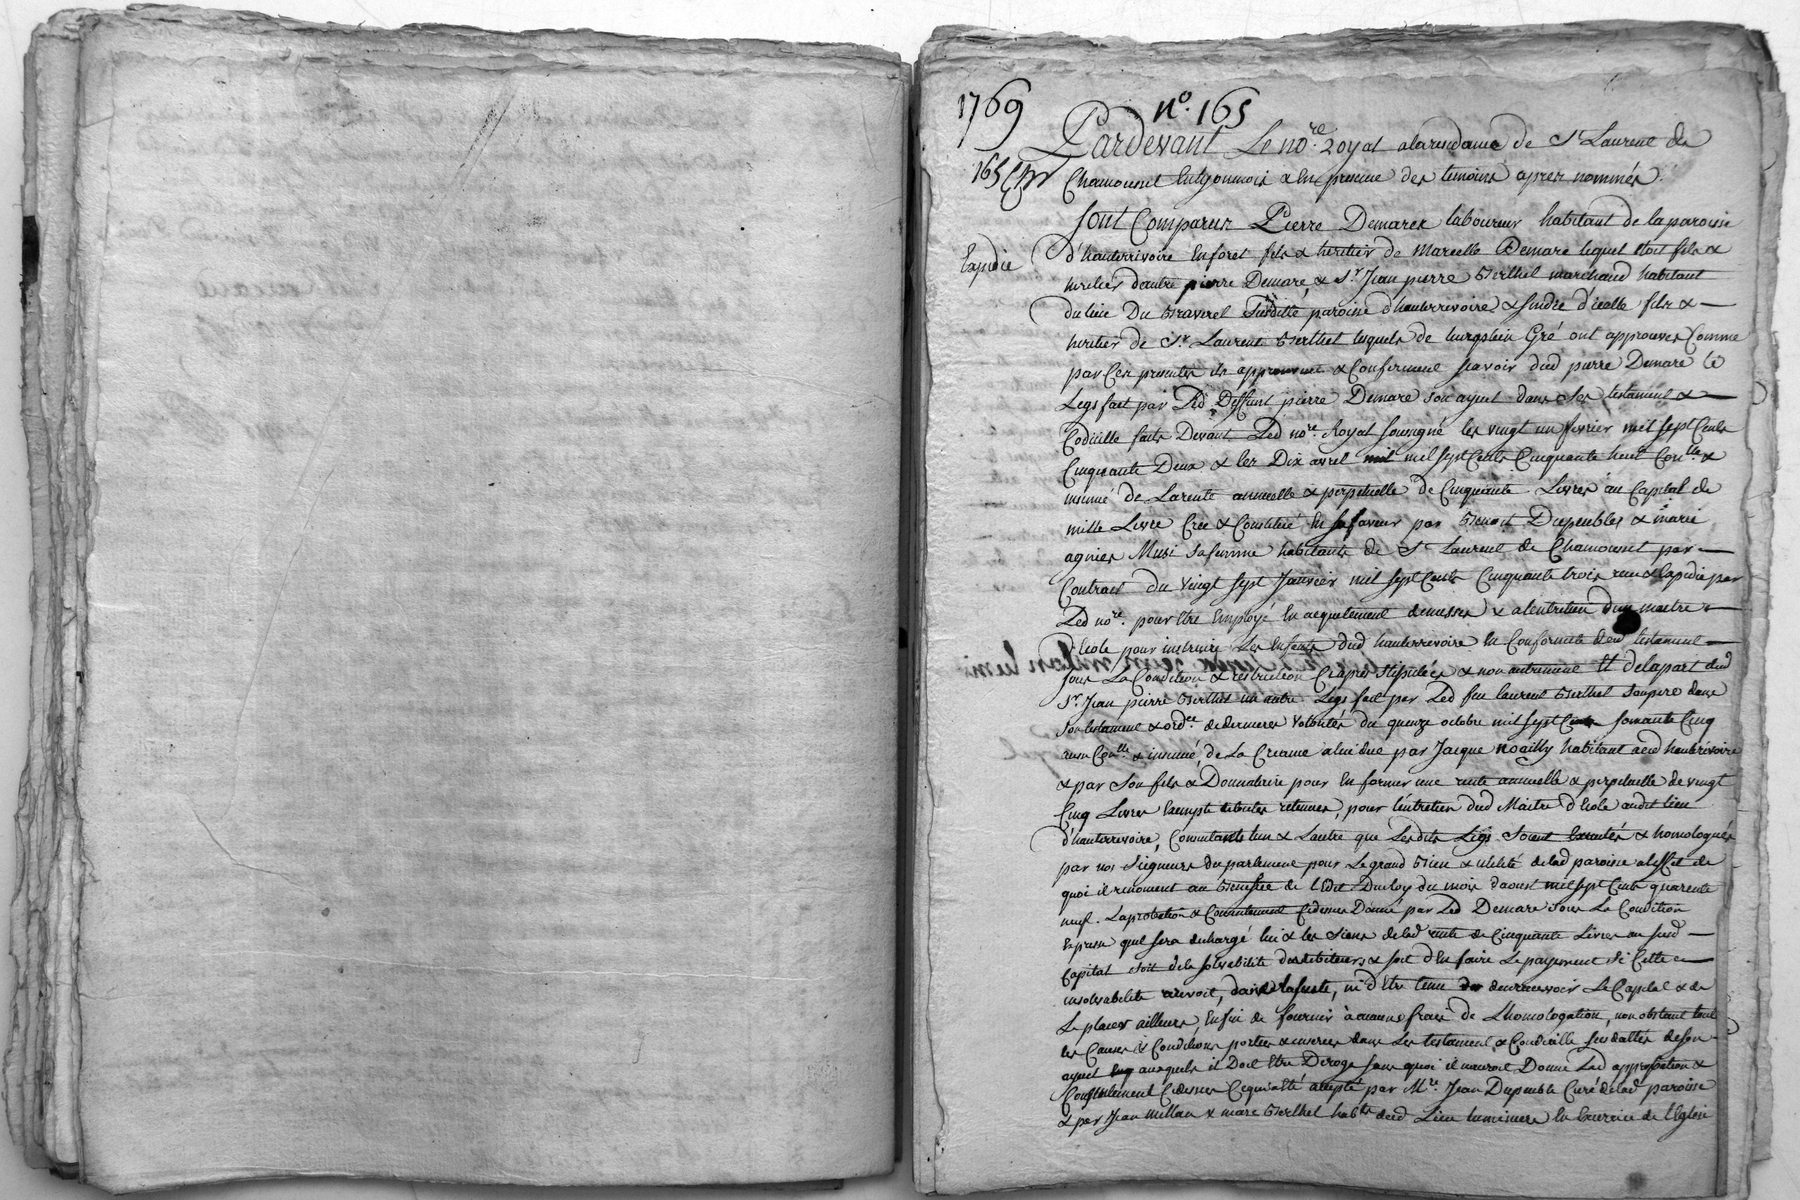 1769
nº. 165
165
Pardevant Le no.re Royal alaresidance de St Laurent de
Chamousset Enlyonnois & En presence des temoins aprez nommés
Sont Comparus Pierre Demarer laboureur habitant de laparoisse
Expedié
d'hauterrivoire Enforet fils & heritier de Marcelle Demare lequel etoit fils &
heritier dautre pierre Demare, & Sr. Jean pierre Berthet marchand habitant
du lieu Du Braverel paroisse d'hauterrivoire & sindic d'icelle fils &
heritier de Sr. Laurent Berthet lesquels de leurs plein Gré ont approuvés Comme
par Ces presentes ils approuvent & Confirment scavoir led pierre Demare le
Legs fait par Led Deffunt pierre Demare son ayeul dans Ses testament &
Codicille faits Devant Led no.re Royal soussigné les vingt un fevrier mil sept Cents
Cinquante Deux & les Dix avril mil sept Cents Cinquante huit Con.llé &
insinué de Larente annuelle & perpetuelle de Cinquante Livres au Capital de
mille Livre Créé & Constitué En sa faveur par Benoit Dupeubles & marie
agnies Musi Safemme habitants de St Laurent de Chamousset par
Contract du vingt sept Janvier mil sept Cents Cinquante trois receu & Expedié par
Led no.re pour Etre Employé En acquitement demesses & alentretien d'un maitre
d'Ecole pour instruire Les Enfants dud hauterrivoire En Conformité dud testament
sous La Condition & restriction Cyaprés stipulées & non autrement Et delapart dud
Sr. Jean pierre Berthet un autre Legs fait par Led feu laurent Berthet Sonpere dans
Son testament & ord.ce dedernieres volontés du quinze octobre mil sept Cents soixante Cinq
aussi Con.llé & insinué, de La Creance alui due par Jacque Noailly habitant aud hauterivoire
& par Son fils & Donnataire pour En former une rente annuelle & perpetuelle de vingt
Cinq Livres Exempte detoutes retenues, pour l'entretien dud Maitre d'Ecole audit lieu
d'hauterrivoire, Consentants lun & Lautre que Lesdits Legs Soient Executés & homologués
par nos Seigneurs du parlement pour Le grand Bien & utilité delad paroisse aleffet de
quoi il renoncent au Benefice de l'Edit Duroy du mois daoust mil sept Cents quarente
neuf. Laprobation & Consentement Cydessus Donné par Led Demare sous La Condition
Expresse quil sera dechargé lui & les Siens delad rente de Cinquante Livres au susd
Capital soit dela solvabilité desdebiteurs & soit d'En faire Le payement Si Cette
insolvabilité arrivoit, dans lasuite, ni d'Etre tenu de Le Capital & de
Le placer ailleurs, Enfin de fournir à aucuns frais de L'homologation, non obstant toutes
les Causes & Conditions portées & inserées dans Les testament & Codicille susdattés de son
ayeul auxquels il Doit Etre Derogé sans quoi il nauroit Donné Lad approbation &
Consentement Cidessus Ce qui a Eté accepté par M.re Jean Dupeuble Curé delad paroisse
& par Jean millan & marc Berthet hab.ts dud Lieu luminiers En Exercice de l'Eglise